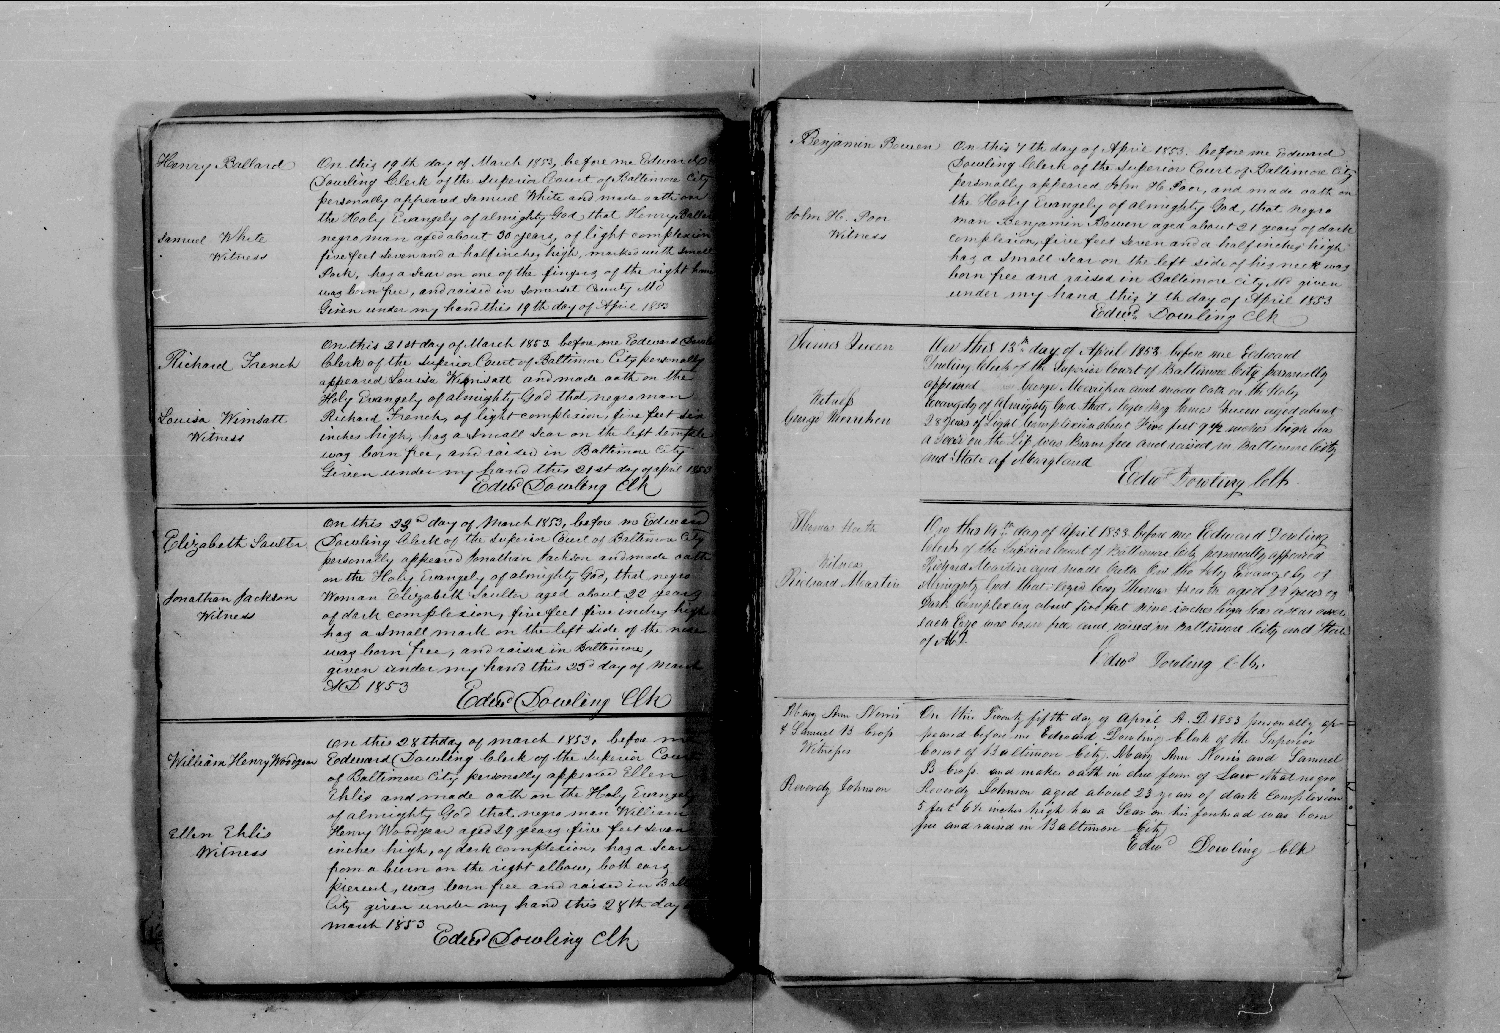 Henry Ballard
Samuel White
Witness
On this 19th day of March 1853, before me Edward
Dowling Clerk of the Superior Court of Baltimore City
personally appeared Samuel White and made oath on
the Holy Evangely of almighty God that Henry Ballard
negro man aged about 30 years, of light complexion
five feet seven and a half inches high, marked with small
Pock, has a scar on one of the fingers of the right hand
was born free, and raised in Somerset County Md
Given under my hand this 19th day of April 1853
Richard French
Louisa Wimsatt
Witness
On this 21st day of March 1853 before me Edward
Clerk of the Superior Court of Baltimore City personally
appeared Louisa Wimsatt and made oath on the
Holy Evangely of almighty God that negro man
Richard French, of light complexion, five feet six
inches high, has a small scar on the left temple
was born free, and raised in Baltimore City
Given under my hand this 21st day of April 1853
Edwd Dowling Clk
Elizabeth Saulter
Jonathan Jackson
Witness
On this 23d day of March 1853, before me Edward
Dowling Clerk of the Superior Court of Baltimore City
personally appeared Jonathan Jackson and made oath
on the Holy Evangely of almighty God, that negro
Woman Elizabeth Saulter aged about 22 years
of dark complexion, five feet five inches high
has a small mark on the left side of the nose
was born free, and raised in Baltimore,
given under my hand this 23d day of March
AD 1853
Edwd Dowling Clk
William Henry Woodyear
Ellen Ehlis
Witness
On this 28th day of March 1853, before me
Eodward Dowling Clerk of the Superior Court
of Baltimore City personally appeared Ellen
Ehlis and made oath on the Holy Evangely
of almighty God that negro man William
Henry Woodyear aged 29 years five feet seven
inches high, of dark complexion, has a scar
from a burn on the right elbow, both ears
pierced, was born free and raised in Balto
City given under my hand this 28th day
March 1853
Edwd Dowling Clk
Benjamin Bowen
John H. Poor
Witness
On this 7th day of April 1853. before me Edward
Dowling Clerk of the Superior Court of Baltimore City
personally appeared John H. Poor, and made oath on
the Holy Evangely of almighty God, that negro
man Benjamin Bowen aged about 21 years of dark
complexion, five feet seven and a half inches high
has a small scar on the left side of his neck was
born free and raised in Baltimore City Md given
under my hand this 7th day of April 1853
Edwd Dowling Clk
James Queen
Witness
George Merriken
On this 13th day of April 1853 before me Eodward
Dowling Clerk of the Superior Court of Baltimore City personally
appeared George Merriken and made Oath on the Holy
Evangely of Almighty God that, Negro Boy James Queen aged about
28 years of Light Complexion about Five feet 9 1/2 inches high has
a Scar on the Lip was Born free and raised in Baltimore City
and State of Maryland
Edwd Dowling Clk.
Thomas Heath
Witness
Richard Martin
On this 19th day of April 1853 before me Edward Dowling
Clerk of the Superior Court of Baltimore City personally appeared
Richard Martin and made Oath On the Holy Evangely of
Almighty God that Negro boy Thomas Heath aged 22 years of
Dark Complexion about five feet nine inches high has a scar over
each Eye was born free and raised in Baltimore City and State
of Md
Edwd Dowling Clk.
Mary Ann Norris
& Samuel B Crop
Witnesses
Reverdy Johnson
On this Twenty fifth day of April A.D. 1853 personally ap-
peared before me Edward Dowling Clerk of the Superior
Court of Baltimore City, Mary Ann Norris and Samuel
B Crop. and makes oath in due form of Law that negro
Reverdy Johnson aged about 23 years of dark Complexion
5 feet 6 1/2 inches high has a Scar on his forehead was born
free and raised in Baltimore City
Edwd Dowling Clk